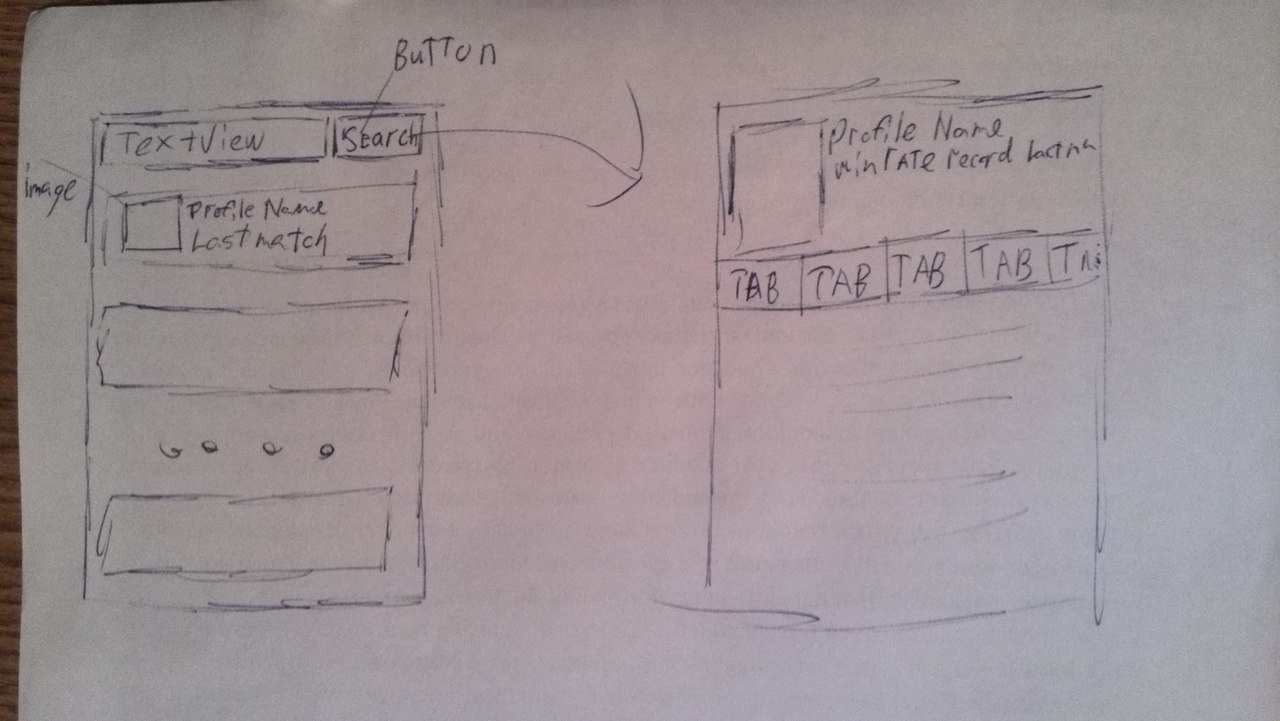 BUTTON
TextView
Search
image
Profile Name
Last match
Profile Name
win rATe record
TAB
TAB
TAB
TAB